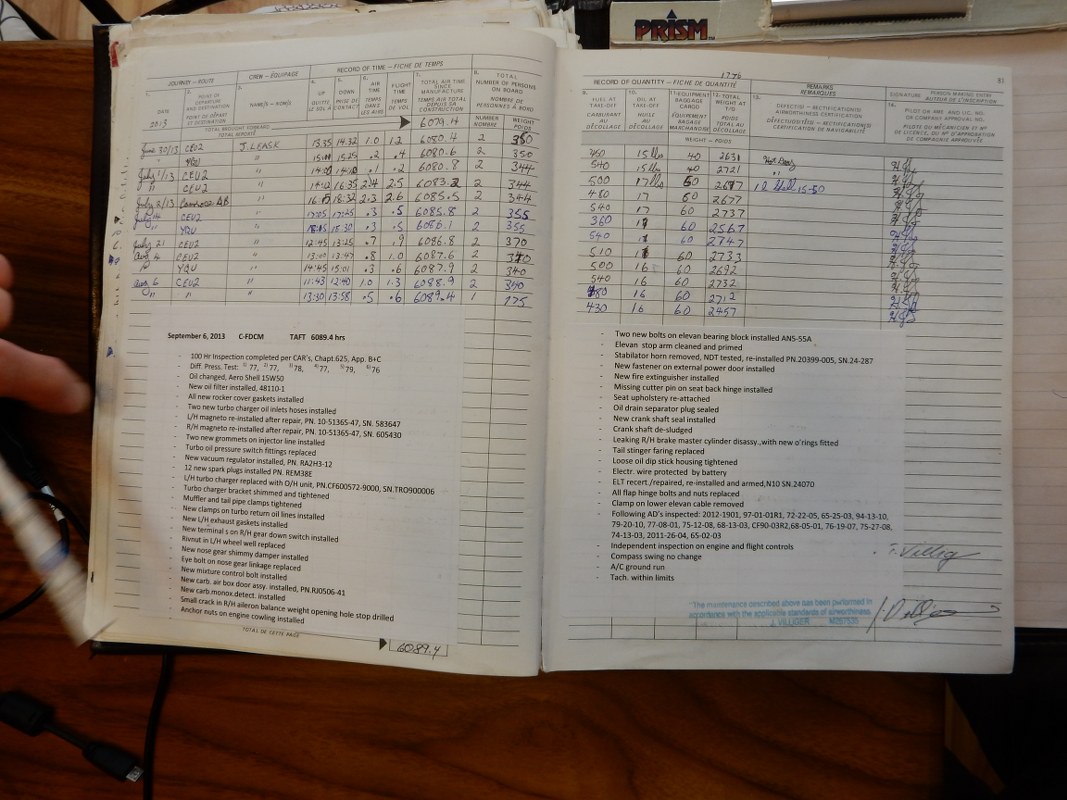 PRISM
JOURNEY - ROUTE
CREW - ÉQUIPAGE
RECORD OF TIME - FICHE DE TEMPS
DATE
2013
POINT OF DEPARTURE AND DESTINATION
POINT DE DÉPART ET DESTINATION
NAME/S - NOM/S
UP
DOWN
AIR TIME
FLIGHT TIME
TEMPS DE VOL
TOTAL AIR TIME SINCE MANUFACTURE
TEMPS AIR TOTAL DEPUIS LA CONSTRUCTION
TOTAL NUMBER OF PERSONS ON BOARD
NOMBRE DE PERSONNES À BORD
NUMBER NOMBRE
WEIGHT POIDS
TOTAL BROUGHT FORWARD
TOTAL REPORTÉ
6079.4
June 30/13 CEU2 J. LEASK 13:35 14:32 1.0 1.2 6080.4 2 350
" YQU " 15:25 .2 .4 6080.6 2 350
July 1/13 CEU2 " .1 .2 6080.8 2 344
" CEU2 " 14:12 16:35 2.4 2.5 6083.2 2 344
July 2/13 Camrose AB " 16:15 18:32 2.3 2.6 6085.5 2 344
July 4 CEU2 " 17:05 17:25 .3 .5 6085.8 2 355
" YQU " 18:15 18:30 .3 .5 6086.1 2 355
July 21 CEU2 " 12:45 13:25 .7 .9 6086.8 2 370
Aug 4 CEU2 " 13:00 13:47 .8 1.0 6087.6 2 370
" YQU " 14:45 15:01 .3 .6 6087.9 2 340
Aug 6 CEU2 " 11:43 12:40 1.0 1.3 6088.9 2 340
" " " 13:30 13:58 .5 .6 6089.4 1 175
September 6, 2013 C-FDCM TAFT 6089.4 hrs
- 100 Hr Inspection completed per CAR's, Chapt.625, App. B+C
- Diff. Press. Test: 1) 77, 2) 77, 3) 78, 4) 77, 5) 79, 6) 76
- Oil changed, Aero Shell 15W50
- New oil filter installed, 48110-1
- All new rocker cover gaskets installed
- Two new turbo charger oil inlets hoses installed
- L/H magneto re-installed after repair, PN. 10-51365-47, SN. 583647
- R/H magneto re-installed after repair, PN. 10-51365-47, SN. 605430
- Two new grommets on injector line installed
- Turbo oil pressure switch fittings replaced
- New vacuum regulator installed, PN. RA2H3-12
- 12 new spark plugs installed PN. REM38E
- L/H turbo charger replaced with O/H unit, PN.CF600572-9000, SN.TRO900006
- Turbo charger bracket shimmed and tightened
- Muffler and tail pipe clamps tightened
- New clamps on turbo return oil lines installed
- New L/H exhaust gaskets installed
- New terminal s on R/H gear down switch installed
- Rivnut in L/H wheel well replaced
- New nose gear shimmy damper installed
- Eye bolt on nose gear linkage replaced
- New mixture control bolt installed
- New carb. air box door assy. installed, PN.RJ0506-41
- New carb monox.detect. installed
- Small crack in R/H aileron balance weight opening hole stop drilled
- Anchor nuts on engine cowling installed
TOTAL DE CETTE PAGE
6089.4
RECORD OF QUANTITY - FICHE DE QUANTITÉ
REMARKS
REMARQUES
SIGNATURE
PERSON MAKING ENTRY
AUTEUR DE L'INSCRIPTION
FUEL AT TAKE-OFF
CARBURANT AU DÉCOLLAGE
OIL AT TAKE-OFF
HUILE AU DÉCOLLAGE
EQUIPMENT BAGGAGE CARGO
TOTAL WEIGHT AT T/O
POIDS TOTAL AU DÉCOLLAGE
WEIGHT - POIDS
15 lbs 40 2631
540 15 lbs 40 2721
500 17 lbs 50
460 17 60 2677
540 17 60 2737
360 60 2567
540 60 2747
510 60 2733
500 16 60 2692
540 16 60 2732
16 60 2712
430 16 60 2457
- Two new bolts on elevan bearing block installed AN5-55A
- Elevan stop arm cleaned and primed
- Stabilator horn removed, NDT tested, re-installed PN.20399-005, SN.24-287
- New fastener on external power door installed
- New fire extinguisher installed
- Missing cutter pin on seat back hinge installed
- Seat upholstery re-attached
- Oil drain separator plug sealed
- New crank shaft seal installed
- Crank shaft de-sludged
- Leaking R/H brake master cylinder disassy.,with new o'rings fitted
- Tail stinger faring replaced
- Loose oil dip stick housing tightened
- Electr. wire protected by battery
- ELT recert./repaired, re-installed and armed,N10 SN.24070
- All flap hinge bolts and nuts replaced
- Clamp on lower elevan cable removed
- Following AD's inspected: 2012-1901, 97-01-01R1, 72-22-05, 65-25-03, 94-13-10,
79-20-10, 77-08-01, 75-12-08, 68-13-03, CF90-03R2,68-05-01, 76-19-07, 75-27-08,
74-13-03, 2011-26-04, 65-02-03
- Independent inspection on engine and flight controls
- Compass swing no change
- A/C ground run
- Tach. within limits
"The maintenance described above has been performed in
accordance with the applicable standards of airworthiness.
J. VILLIGER